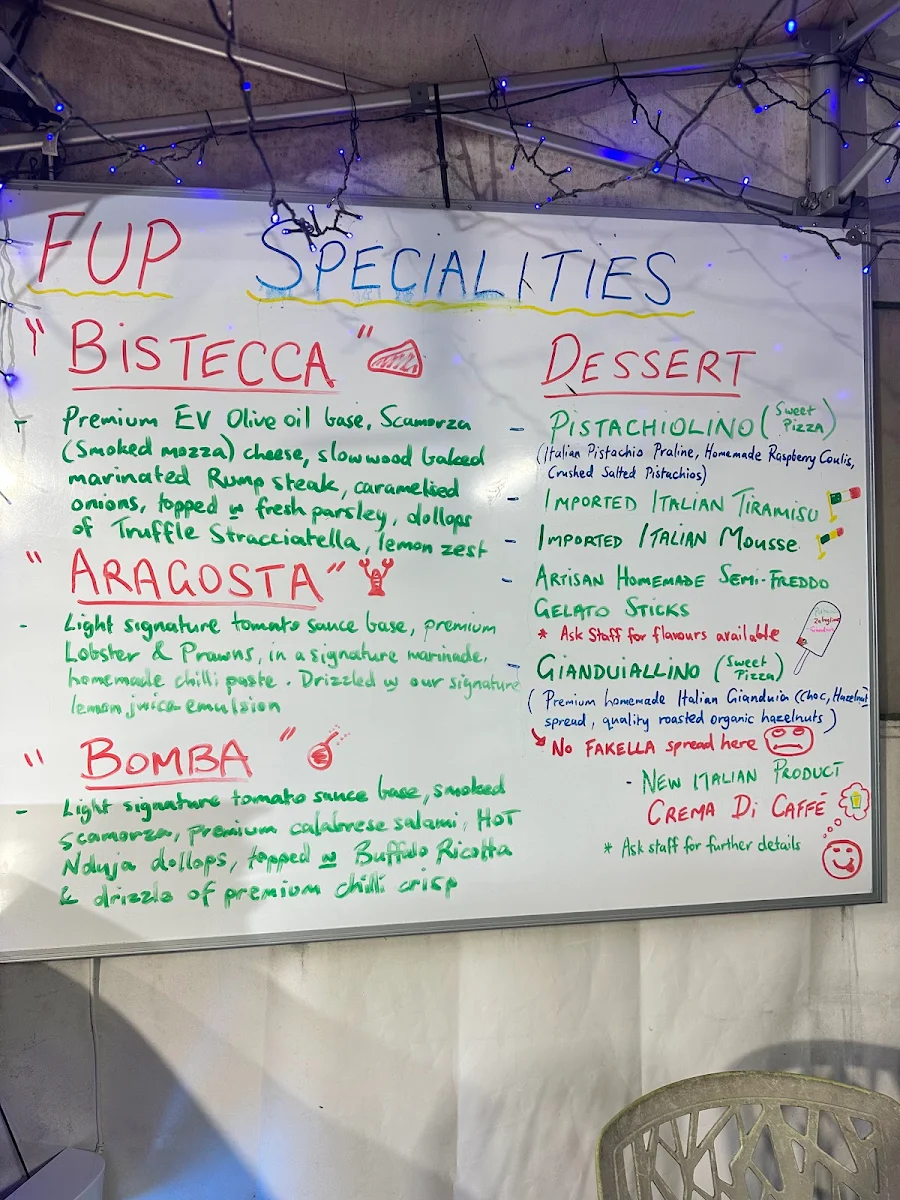 FUP SPECIALITIES
"BISTECCA"
- Premium EV Olive oil base, Scamorza
(Smoked mozza) cheese, slow wood baked
marinated Rump steak, caramelised
onions, topped w fresh parsley, dollops
of Truffle Stracciatella, lemon zest
"ARAGOSTA"
- Light signature tomato sauce base, premium
Lobster & Prawns, in a signature marinade,
homemade chilli paste. Drizzled w our signature
lemon juice emulsion
"BOMBA"
- Light signature tomato sauce base, smoked
Scamorza, premium calabrese salami, HOT
Nduja dollops, topped w Buffulo Ricotta
& drizzle of premium chilli crisp
DESSERT
- PISTACHIOLINO (Sweet
Pizza)
(Italian Pistachio Praline, Homemade Raspberry Coulis,
Crushed Salted Pistachios)
- IMPORTED ITALIAN TIRAMISU
- IMPORTED ITALIAN MOUSSE
- ARTISAN HOMEMADE SEMI-FREDDO
GELATO STICKS
* Ask Staff for flavours available
- GIANDUIALLINO (Sweet
Pizza)
(Premium homemade Italian Gianduia (choc, Hazelnut
spread, quality roasted organic hazelnuts)
No FAKELLA spread here
- NEW ITALIAN PRODUCT
CREMA Di CAFFÉ
* Ask staff for further details